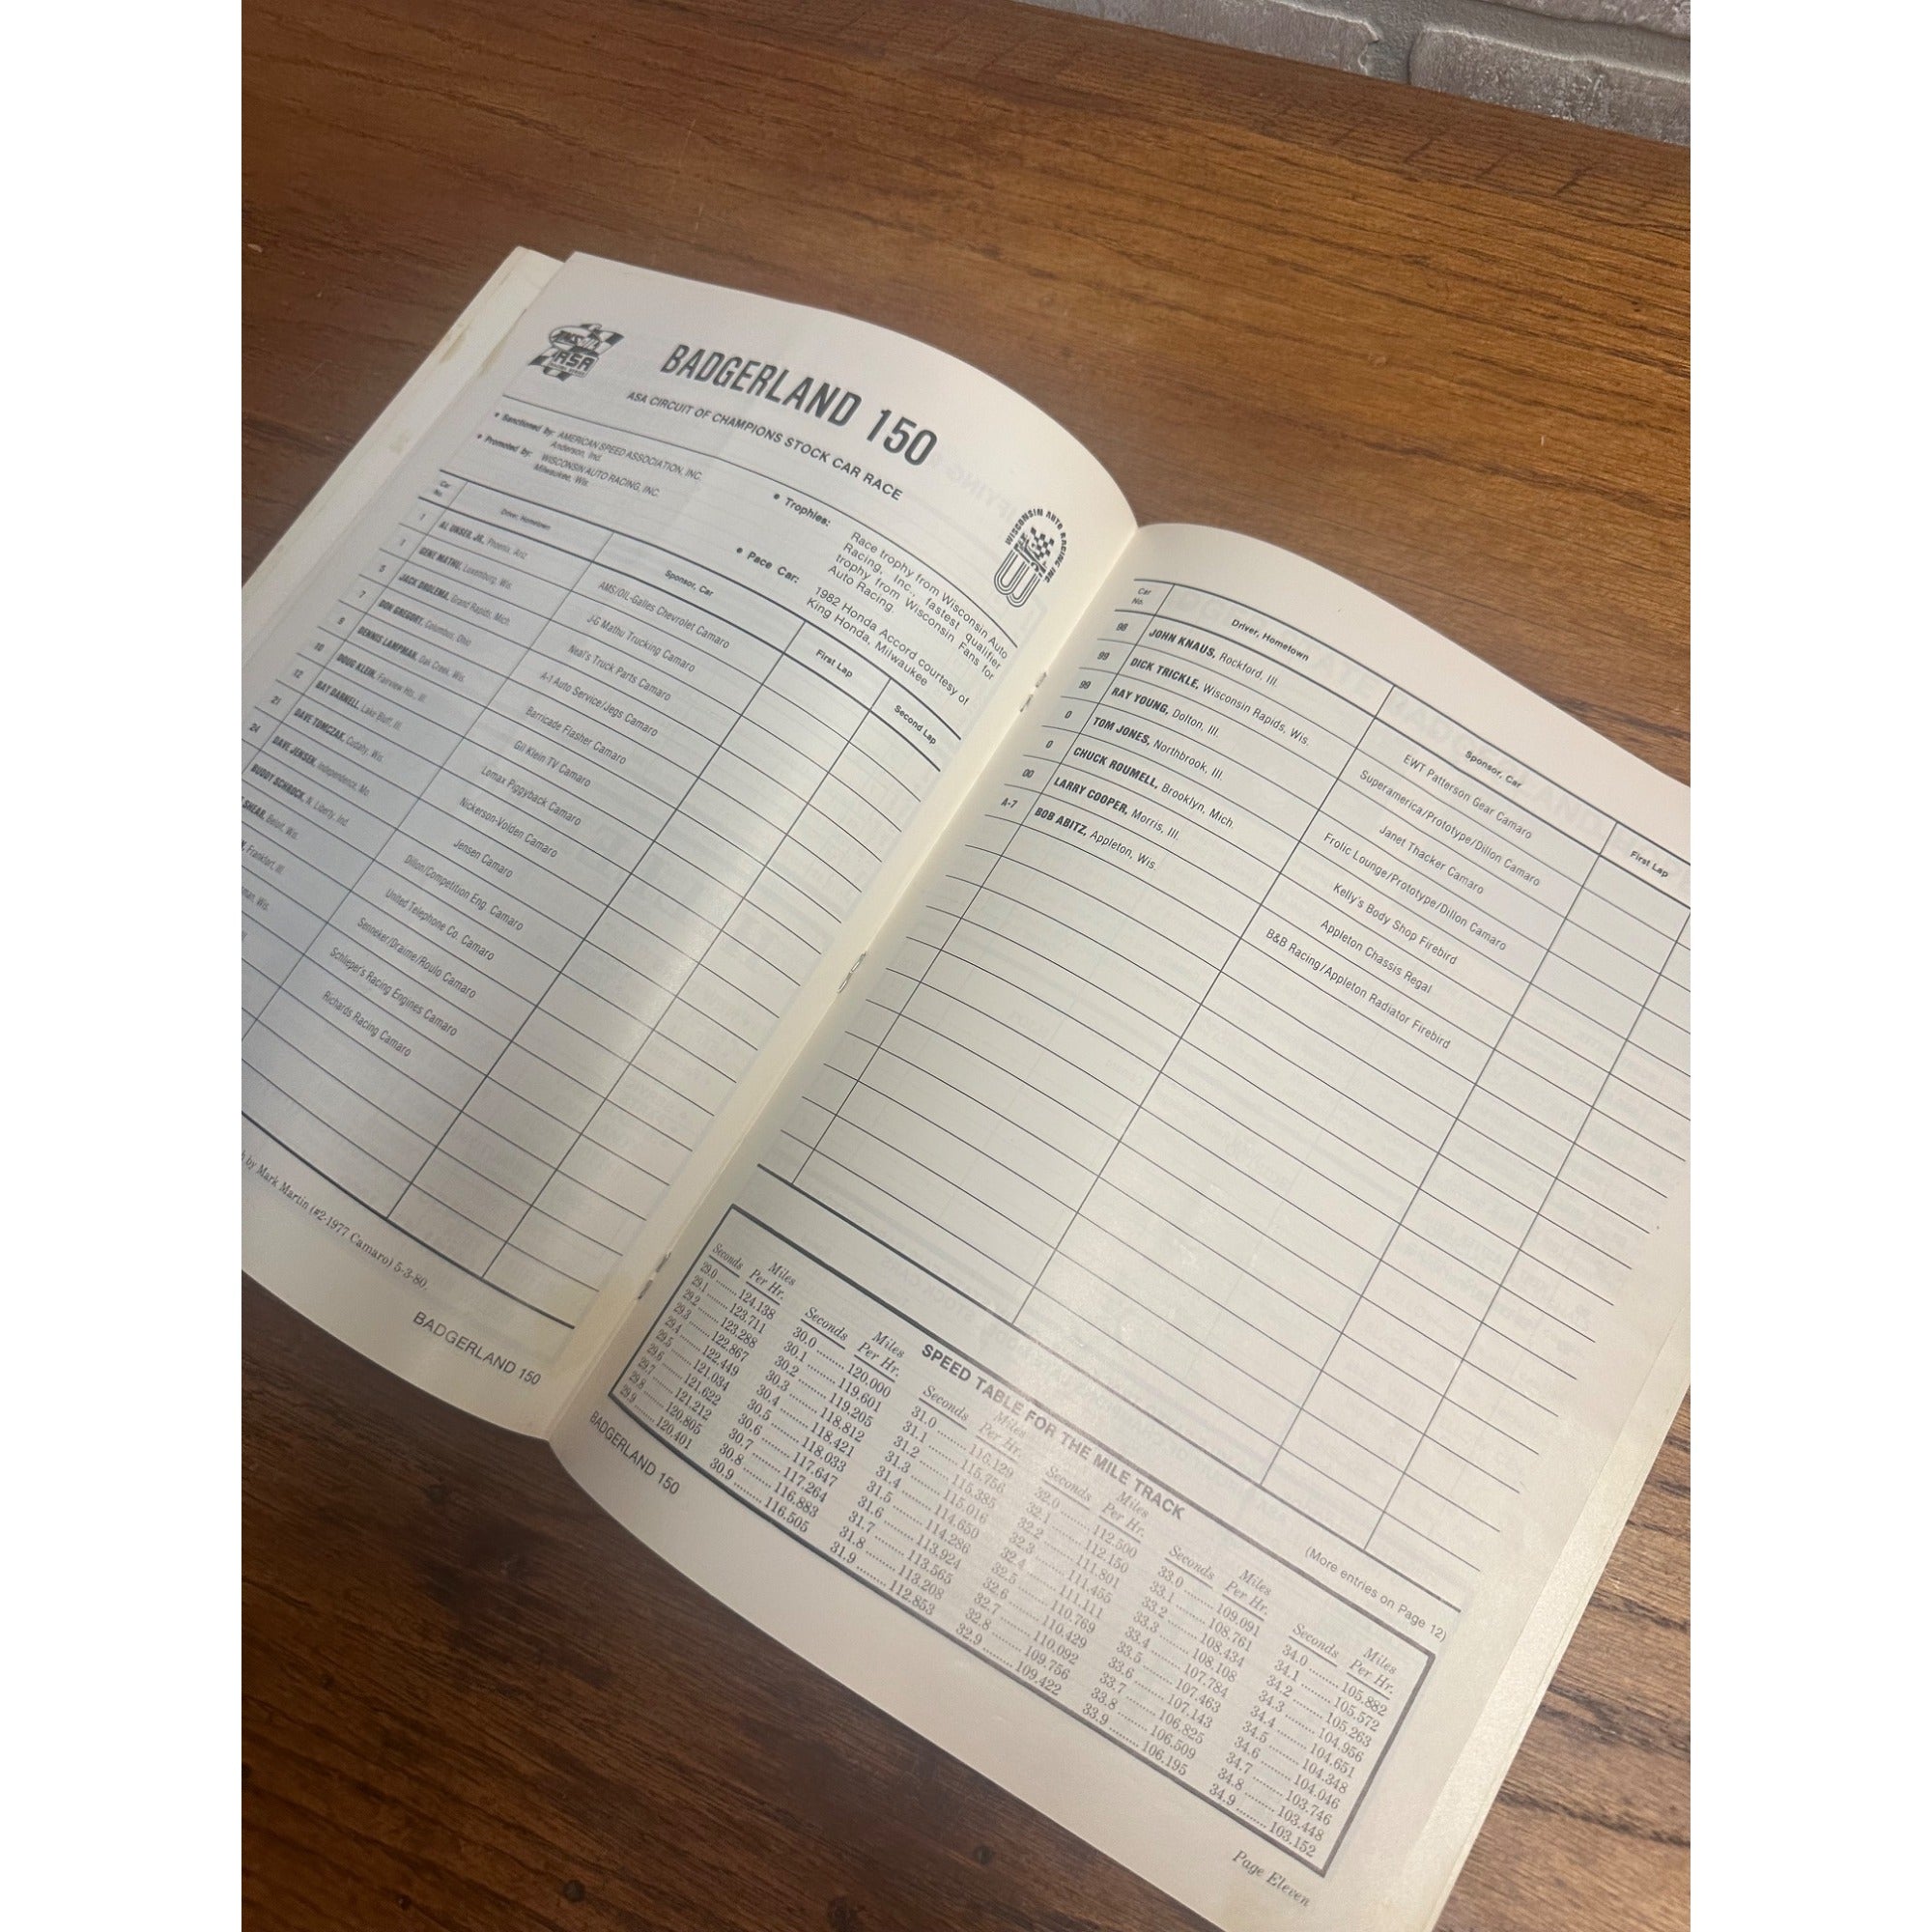 ASA
BADGERLAND 150
ASA CIRCUIT OF CHAMPIONS STOCK CAR RACE
• Sanctioned by: AMERICAN SPEED ASSOCIATION, INC.
Anderson, Ind.
• Promoted by: WISCONSIN AUTO RACING, INC.
Milwaukee, Wis.
• Trophies: Race trophy from Wisconsin Auto
Racing, Inc., fastest qualifier
trophy from Wisconsin Fans for
Auto Racing.
• Pace Car: 1982 Honda Accord courtesy of
King Honda, Milwaukee
WISCONSIN AUTO RACING INC
Car No. Driver, Hometown Sponsor, Car First Lap Second Lap
AL UNSER, JR., Phoenix, Ariz. AMS/OIL-Galles Chevrolet Camaro
GENE MATHU, Luxemburg, Wis. J-G Mathu Trucking Camaro
5 JACK DROLEMA, Grand Rapids, Mich. Neal's Truck Parts Camaro
7 DON GREGORY, Columbus, Ohio A-1 Auto Service/Jegs Camaro
9 DENNIS LAMPMAN, Oak Creek, Wis. Barricade Flasher Camaro
10 DOUG KLEIN, Fairview Hts., Ill. Gil Klein TV Camaro
12 RAY DARNELL, Lake Bluff, Ill. Lomax Piggyback Camaro
21 DAVE TOMCZAK, Cudahy, Wis. Nickerson-Volden Camaro
24 DAVE JENSEN, Independence, Mo. Jensen Camaro
BUDDY SCHROCK, N. Liberty, Ind. Dillon/Competition Eng. Camaro
SHEAR, Beloit, Wis. United Telephone Co. Camaro
Frankfort, Ill. Senneker/Draime/Roulo Camaro
Wis. Schlieper's Racing Engines Camaro
Richards Racing Camaro
by Mark Martin (#2-1977 Camaro) 5-3-80.
BADGERLAND 150
Car No. Driver, Hometown Sponsor, Car First Lap
98 JOHN KNAUS, Rockford, Ill. EWT Patterson Gear Camaro
99 DICK TRICKLE, Wisconsin Rapids, Wis. Superamerica/Prototype/Dillon Camaro
99 RAY YOUNG, Dolton, Ill. Janet Thacker Camaro
0 TOM JONES, Northbrook, Ill. Frolic Lounge/Prototype/Dillon Camaro
0 CHUCK ROUMELL, Brooklyn, Mich. Kelly's Body Shop Firebird
00 LARRY COOPER, Morris, Ill. Appleton Chassis Regal
A-7 BOB ABITZ, Appleton, Wis. B&B Racing/Appleton Radiator Firebird
(More entries on Page 12)
SPEED TABLE FOR THE MILE TRACK
Seconds Miles Per Hr.
29.0 ........ 124.138
29.1 ........ 123.711
29.2 ........ 123.288
29.3 ........ 122.867
29.4 ........ 122.449
29.5 ........ 121.034
29.6 ........ 121.622
29.7 ........ 121.212
29.8 ........ 120.805
29.9 ........ 120.401
Seconds Miles Per Hr.
30.0 ........ 120.000
30.1 ........ 119.601
30.2 ........ 119.205
30.3 ........ 118.812
30.4 ........ 118.421
30.5 ........ 118.033
30.6 ........ 117.647
30.7 ........ 117.264
30.8 ........ 116.883
30.9 ........ 116.505
Seconds Miles Per Hr.
31.0 ........ 116.129
31.1 ........ 115.756
31.2 ........ 115.385
31.3 ........ 115.016
31.4 ........ 114.650
31.5 ........ 114.286
31.6 ........ 113.924
31.7 ........ 113.565
31.8 ........ 113.208
31.9 ........ 112.853
Seconds Miles Per Hr.
32.0 ........ 112.500
32.1 ........ 112.150
32.2 ........ 111.801
32.3 ........ 111.455
32.4 ........ 111.111
32.5 ........ 110.769
32.6 ........ 110.429
32.7 ........ 110.092
32.8 ........ 109.756
32.9 ........ 109.422
Seconds Miles Per Hr.
33.0 ........ 109.091
33.1 ........ 108.761
33.2 ........ 108.434
33.3 ........ 108.108
33.4 ........ 107.784
33.5 ........ 107.463
33.6 ........ 107.143
33.7 ........ 106.825
33.8 ........ 106.509
33.9 ........ 106.195
Seconds Miles Per Hr.
34.0 ........ 105.882
34.1 ........ 105.572
34.2 ........ 105.263
34.3 ........ 104.956
34.4 ........ 104.651
34.5 ........ 104.348
34.6 ........ 104.046
34.7 ........ 103.746
34.8 ........ 103.448
34.9 ........ 103.152
BADGERLAND 150
Page Eleven